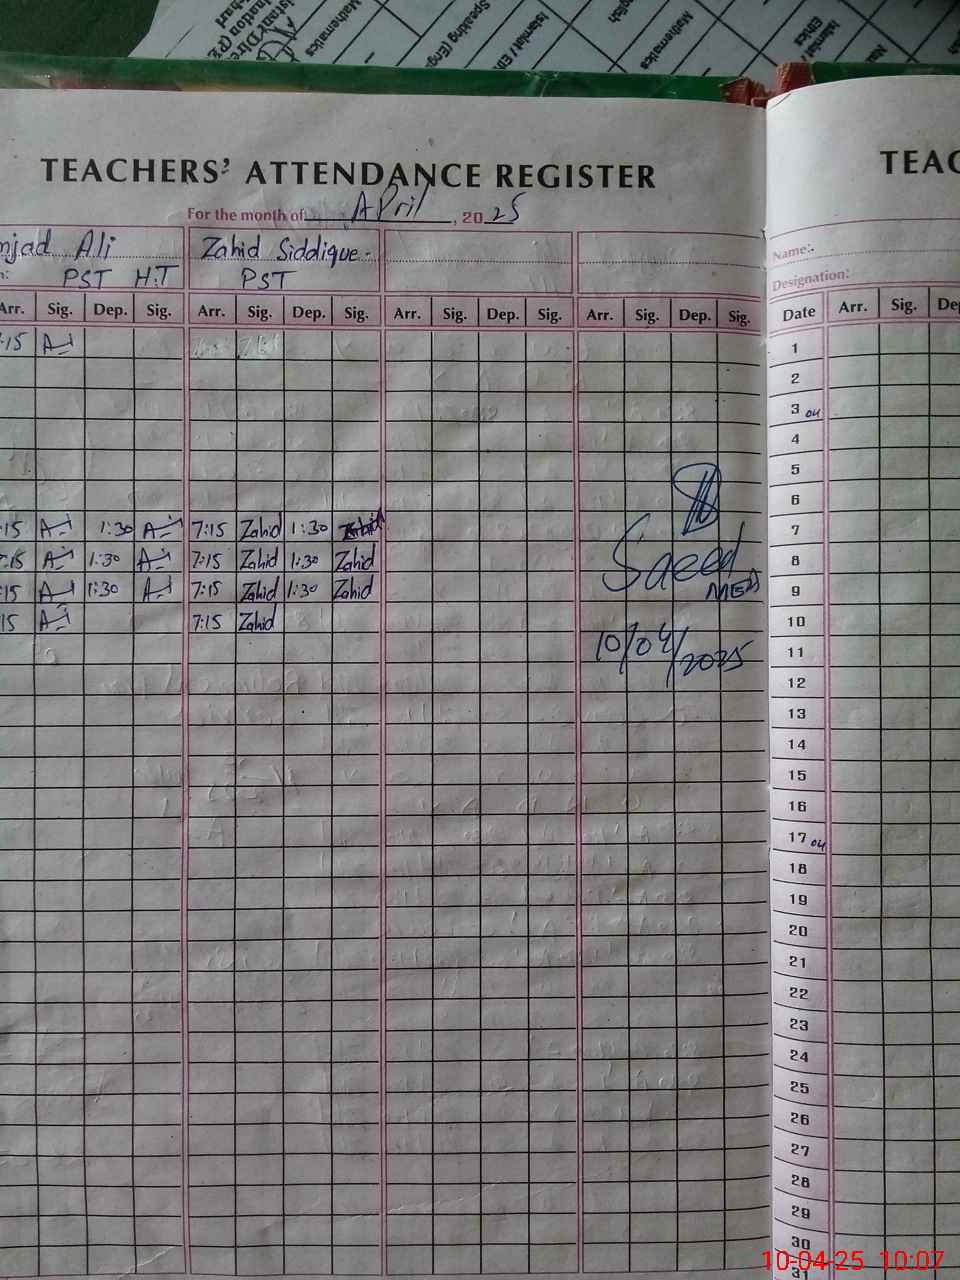 Mathematics
Speaking (Eng
Islamiat / Eth
Mathematics
Islamiat /
Ethics
TEACHERS' ATTENDANCE REGISTER
TEAC
For the month of April, 2025
mjad Ali Zahid Siddique.
PST H.T PST
Name:
Designation:
Arr. Sig. Dep. Sig. Arr. Sig. Dep. Sig. Arr. Sig. Dep. Sig. Arr. Sig. Dep. Sig. Date Arr. Sig. Dep
:15 1
2
3 04
4
5
6
:15 1:30 7:15 Zahid 1:30 Zahid 7
7:15 1:30 7:15 Zahid 1:30 Zahid Saeed 8
:15 1:30 7:15 Zahid 1:30 Zahid MEA 9
:15 7:15 Zahid 10
10/04/2025 11
12
13
14
15
16
17 04
18
19
20
21
22
23
24
25
26
27
28
29
30
31
10-04-25 10:07